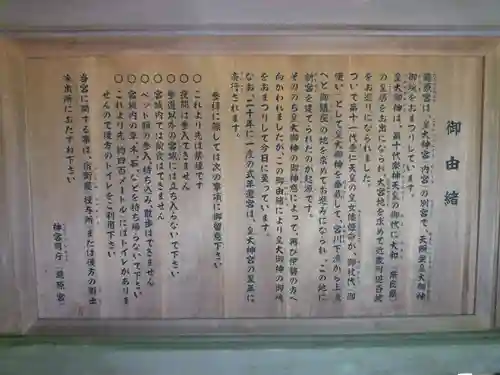 御由緒
瀧原宮は、皇大神宮(内宮)の別宮で、天照坐皇大御神
御魂をおまつりしています。
皇大御神は、第十代崇神天皇の御代に大和(奈良県)
の皇居をお出になられ、大宮地を求めて近畿可近各地
をお巡りになられました。
ついで第十一代垂仁天皇の皇女倭姫命が、御杖代(御
使い)として皇大御神を奉戴して、宮川下流から上流
へと御鎮座の地を求めてお進みになられ、この地に
新宮を建てられたのが起源です。
そののち皇大御神の御神意によって、再び伊勢の方へ
向かわれましたが、この御由緒により皇大御神の御魂
をおまつりして今日に至っています。
なお、二十年に一度の式年遷宮は、皇大神宮の次に
斎行されます。
参拝に際しては次の事項に御留意下さい
○これより先は禁煙です
○夜間は参入できません
○参道以外の宮域には立ち入らないで下さい
○宮域内では飲食はできません
○ペット類の参入、持ち込み、散歩はできません
○宮域内の草、木、石、などを持ち帰らないで下さい
○これより先(約四百メートル)にはトイレがありま
せんので後方のトイレをご利用下さい
当宮に関する事は、宿衛屋(授与所)または後方の衛士
派出所におたずね下さい
神宮司庁(瀧原宮)